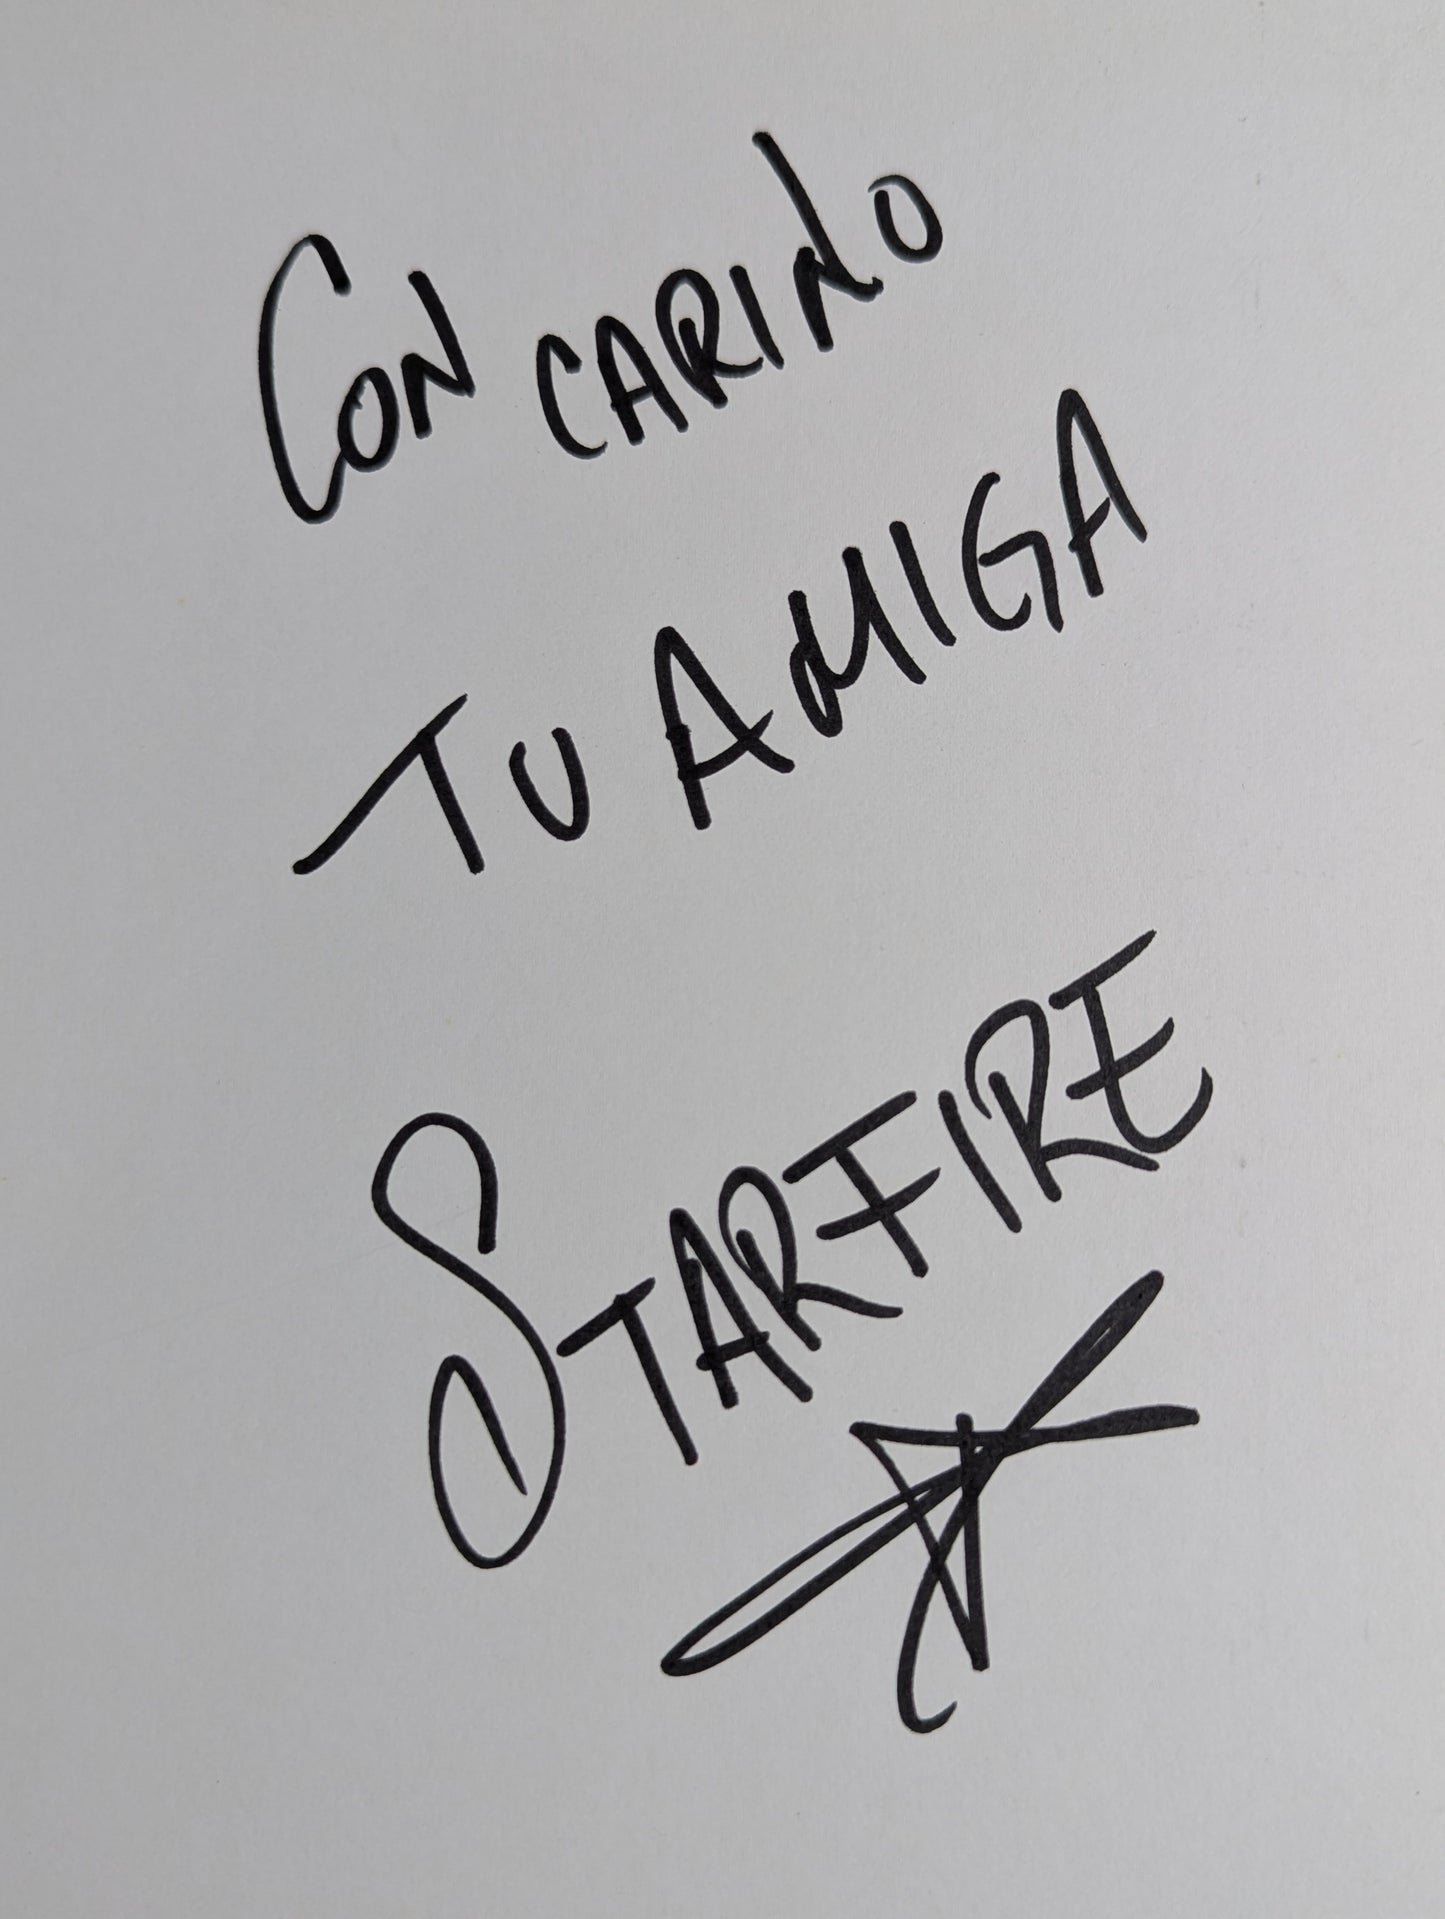 CON CARINO
TU AMIGA
STARFIRE